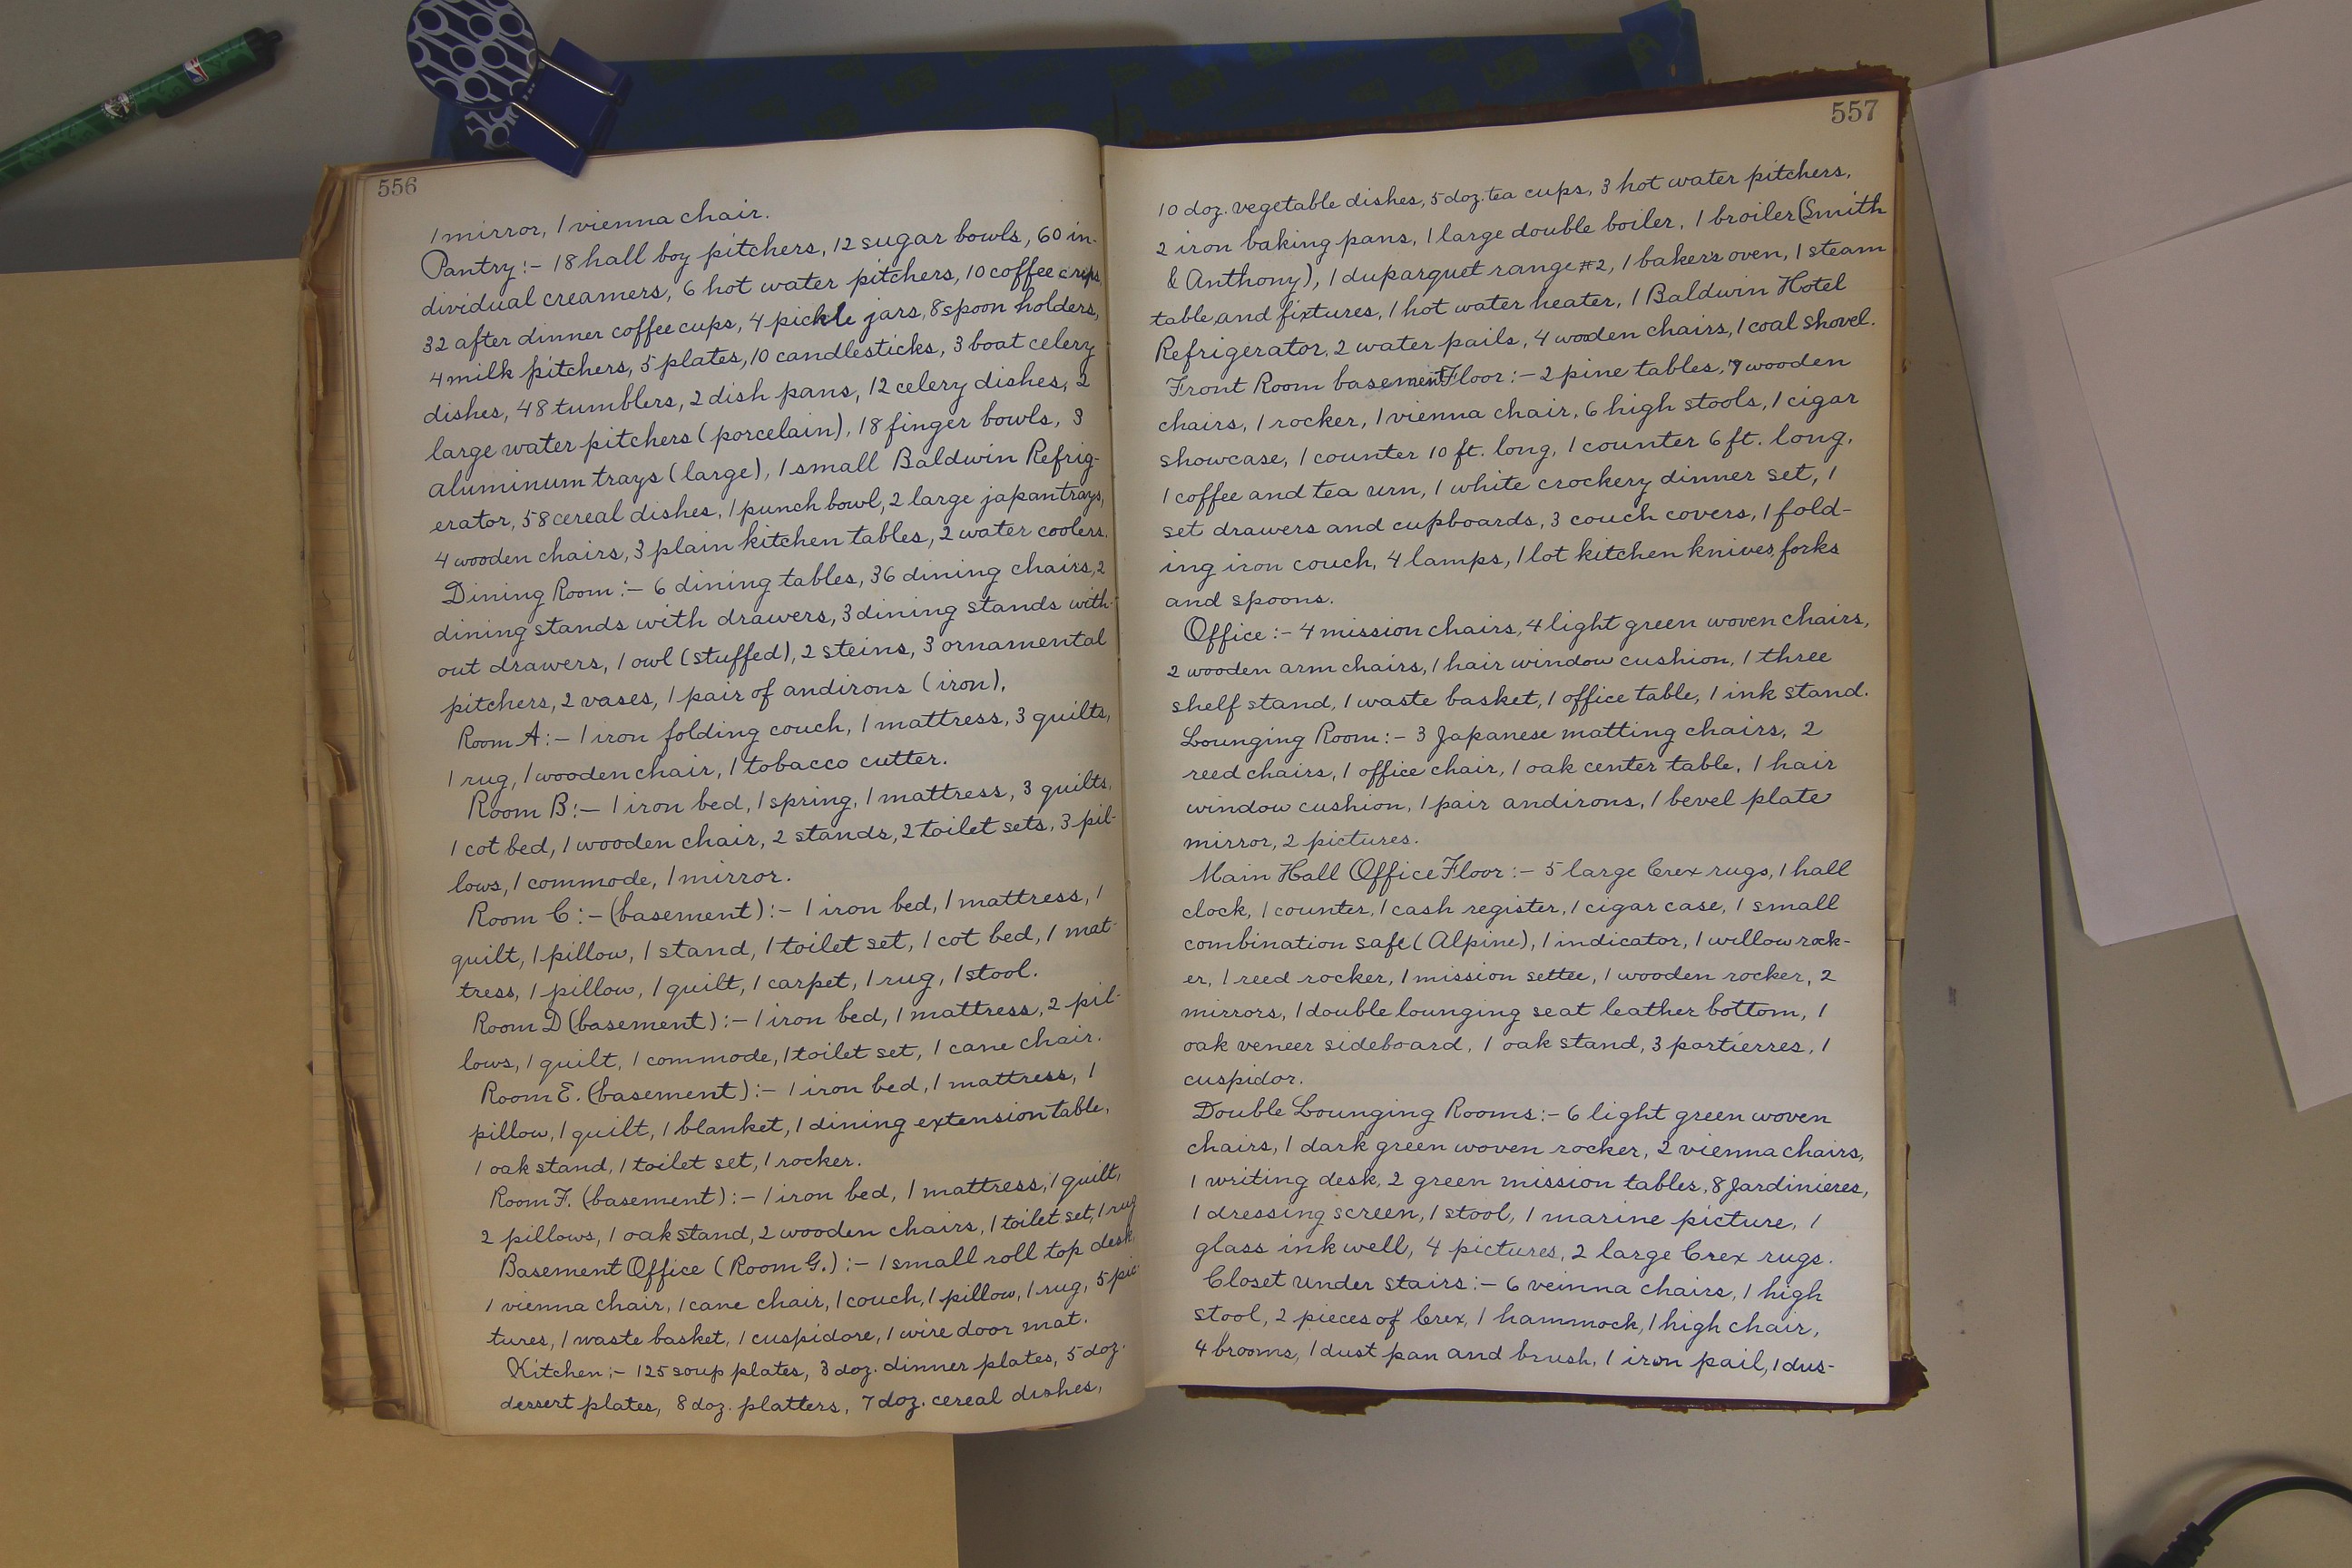 556
1 mirror, 1 vienna chair.
Pantry:- 18 hall boy pitchers, 12 sugar bowls, 60 in-
dividual creamers, 6 hot water pitchers, 10 coffee cups,
32 after dinner coffee cups, 4 pickle jars, 8 spoon holders,
4 milk pitchers, 5 plates, 10 candlesticks, 3 boat celery
dishes, 48 tumblers, 2 dish pans, 12 celery dishes, 2
large water pitchers (porcelain), 18 finger bowls, 3
aluminum trays (large), 1 small Baldwin Refrig-
erator, 58 cereal dishes, 1 punch bowl, 2 large japan trays,
4 wooden chairs, 3 plain kitchen tables, 2 water coolers.
Dining Room:- 6 dining tables, 36 dining chairs, 2
dining stands with drawers, 3 dining stands with-
out drawers, 1 owl (stuffed), 2 steins, 3 ornamental
pitchers, 2 vases, 1 pair of andirons (iron),
Room A:- 1 iron folding couch, 1 mattress, 3 quilts,
1 rug, 1 wooden chair, 1 tobacco cutter.
Room B:- 1 iron bed, 1 spring, 1 mattress, 3 quilts,
1 cot bed, 1 wooden chair, 2 stands, 2 toilet sets, 3 pil-
lows, 1 commode, 1 mirror.
Room C:- (basement):- 1 iron bed, 1 mattress, 1
quilt, 1 pillow, 1 stand, 1 toilet set, 1 cot bed, 1 mat-
tress, 1 pillow, 1 quilt, 1 carpet, 1 rug, 1 stool.
Room D (basement):- 1 iron bed, 1 mattress, 2 pil-
lows, 1 quilt, 1 commode, 1 toilet set, 1 cane chair.
Room E. (basement):- 1 iron bed, 1 mattress, 1
pillow, 1 quilt, 1 blanket, 1 dining extension table,
1 oak stand, 1 toilet set, 1 rocker.
Room F. (basement):- 1 iron bed, 1 mattress, 1 quilt,
2 pillows, 1 oak stand, 2 wooden chairs, 1 toilet set, 1 rug
Basement Office (Room G.):- 1 small roll top desk
1 vienna chair, 1 cane chair, 1 couch, 1 pillow, 1 rug, 5 pic-
tures, 1 waste basket, 1 cuspidore, 1 wire door mat.
Kitchen:- 125 soup plates, 3 doz. dinner plates, 5 doz.
dessert plates, 8 doz. platters, 7 doz. cereal dishes,
557
10 doz. vegetable dishes, 5 doz. tea cups, 3 hot water pitchers,
2 iron baking pans, 1 large double boiler, 1 broiler (Smith
& Anthony), 1 duparquet range #2, 1 baker's oven, 1 steam
table and fixtures, 1 hot water heater, 1 Baldwin Hotel
Refrigerator, 2 water pails, 4 wooden chairs, 1 coal shovel.
Front Room basement Floor:- 2 pine tables, 7 wooden
chairs, 1 rocker, 1 vienna chair, 6 high stools, 1 cigar
showcase, 1 counter 10 ft. long, 1 counter 6 ft. long,
1 coffee and tea urn, 1 white crockery dinner set, 1
set drawers and cupboards, 3 couch covers, 1 fold-
ing iron couch, 4 lamps, 1 lot kitchen knives, forks
and spoons.
Office:- 4 mission chairs, 4 light green woven chairs,
2 wooden arm chairs, 1 hair window cushion, 1 three
shelf stand, 1 waste basket, 1 office table, 1 ink stand.
Lounging Room:- 3 Japanese matting chairs, 2
reed chairs, 1 office chair, 1 oak center table, 1 hair
window cushion, 1 pair andirons, 1 bevel plate
mirror, 2 pictures.
Main Hall Office Floor:- 5 large Crex rugs, 1 hall
clock, 1 counter, 1 cash register, 1 cigar case, 1 small
combination safe (Alpine), 1 indicator, 1 willow rock-
er, 1 reed rocker, 1 mission settee, 1 wooden rocker, 2
mirrors, 1 double lounging seat leather bottom, 1
oak veneer sideboard, 1 oak stand, 3 portierres, 1
cuspidor.
Double Lounging Rooms:- 6 light green woven
chairs, 1 dark green woven rocker, 2 vienna chairs,
1 writing desk, 2 green mission tables, 8 Jardinieres,
1 dressing screen, 1 stool, 1 marine picture, 1
glass inkwell, 4 pictures, 2 large Crex rugs.
Closet under stairs:- 6 veinna chairs, 1 high
stool, 2 pieces of Crex, 1 hammock, 1 high chair,
4 brooms, 1 dust pan and brush, 1 iron pail, 1 dus-